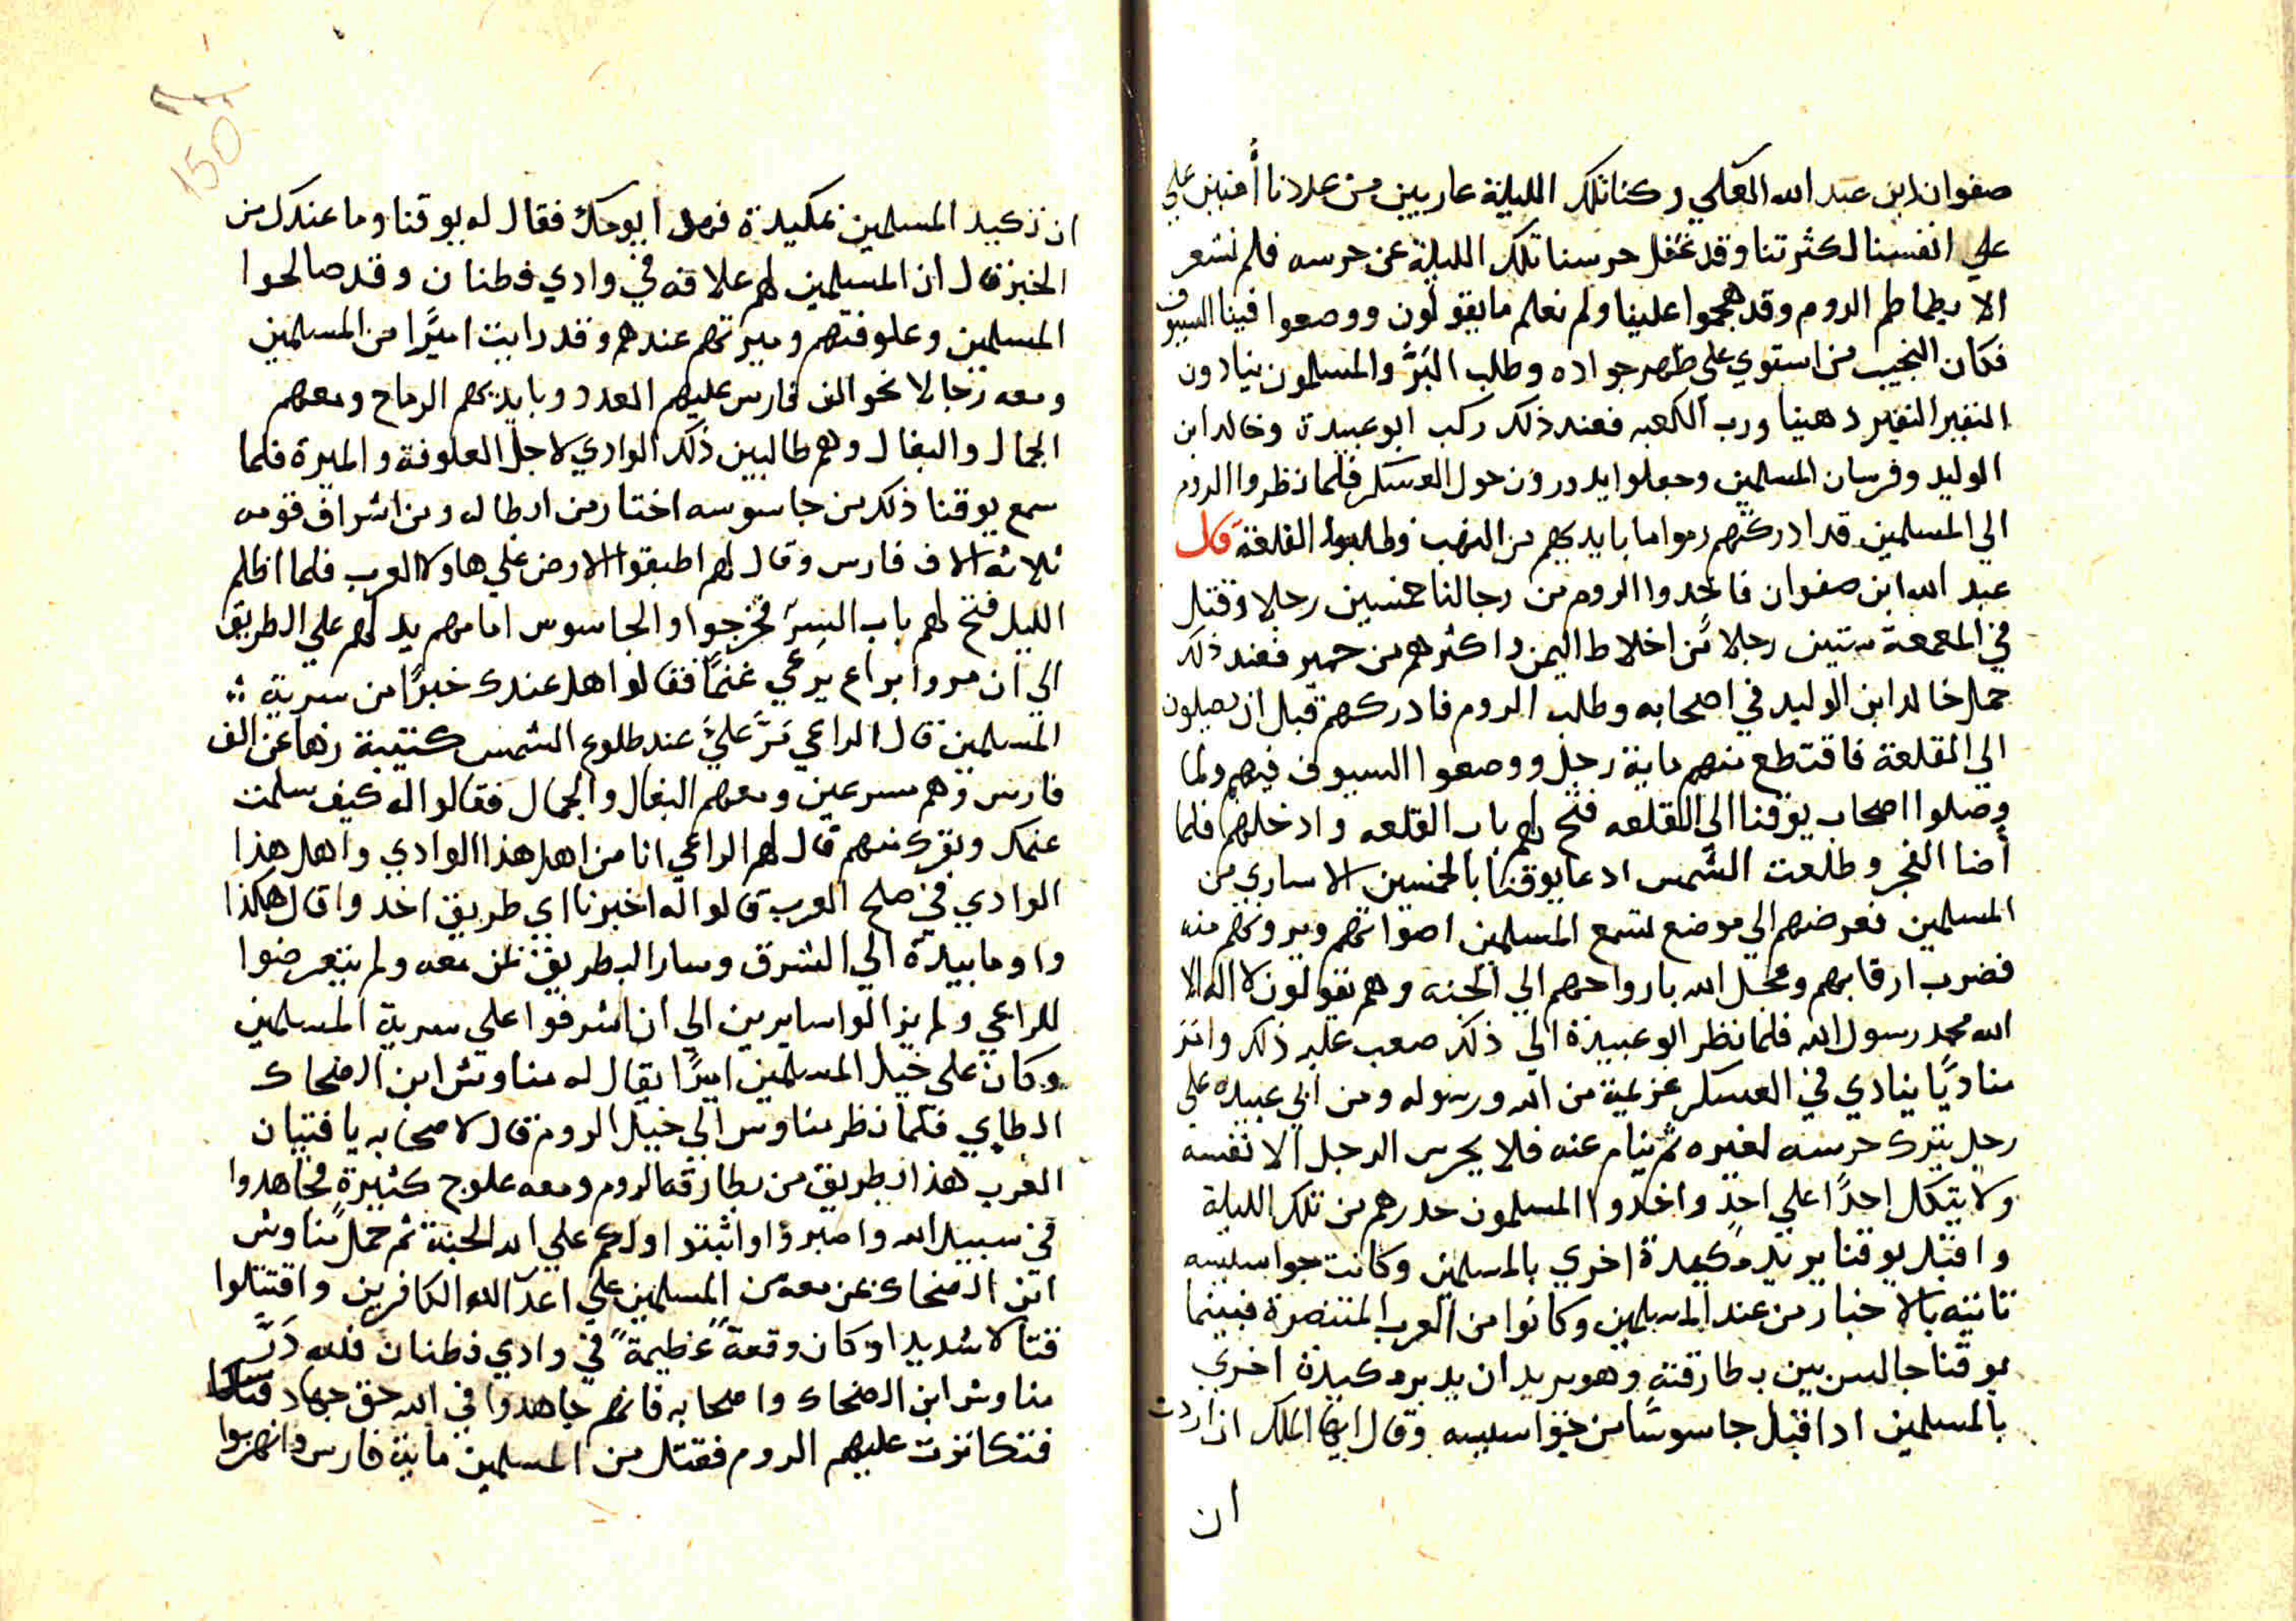 صفوان ابن عبد الله العكلي وكنا تلك الليلة عاريين من عددنا أمنين علي
علي انفسنا لكثرتنا وقد غفل حرسنا تلك الليلة عن حرسه فلم نشعر
الا بطماطم الروم وقد هجموا علينا ولم نعلم ما يقولون ووضعوا فينا السيوف
فكان النجيب من استوي علي ظهر جواده وطلب البَرَّ والمسلمون ينادون
النفير النفير دهينا ورب الكعبه فعند ذلك ركب ابو عبيدة وخالد ابن
الوليد وفرسان المسلمين وجعلوا يدورون حول العسكر فلما نظروا الروم
الي المسلمين قد ادركتهم رموا ما بايديهم من النهب وطلبوا القلعة قال
عبد الله ابن صفوان فاخدوا الروم من رجالنا خمسين رجلا وقتل
في المعمعة ستين رجلا من اخلاط اليمن واكثرهم من حمير فعند ذلك
حمل خالد ابن الوليد في اصحابه وطلب الروم فادركهم قبل ان يصلون
الي القلعة فاقتطع منهم ماية رجل ووضعوا السيوف فيهم ولما
وصلوا اصحاب يوقنا الي القلعه فتح لهم باب القلعه وادخلهم فلما
أضا الفجر وطلعت الشمس ادعا يوقنا بالخمسين الاساري من
المسلمين فعرضهم الي موضع لتسمع المسلمين اصواتهم ويرونهم منه
فضرب ارقابهم وعجل الله بارواحهم الي الجنه وهم يقولون لا اله الا
الله محمد رسول الله فلما نظر ابو عبيدة الي ذلك صعب عليه ذلك وامر
مناديًا ينادي في العسكر عزيمة من الله ورسوله ومن ابي عبيده علي
رجل يترك حرسه لغيره ثم ينام عنه فلا يحرس الرجل الا نفسه
ولا يتكل احدًا علي احدٍ واخدوا المسلمون حدرهم من تلك الليلة
واقبل يوقنا يريد مكيدة اخري بالمسلمين وكانت جواسيسه
تاتيه بالاخبار من عند المسلمين وكانوا من العرب المتنصرة فبينما
يوقنا جالس بين بطارقته وهو يريد ان يدبر مكيدة اخري
بالمسلمين اد اقبل جاسوسًا من جواسيسه وقال ايها الملك ان اردت
ان
150
ان تكيد المسلمين بمكيدة فهدا يومك فقال له يوقنا وما عندك من
الخبز قال ان المسلمين لهم علاقه في وادي فطنان وقد صالحوا
المسلمين وعلوفتهم وميرتهم عندهم وقد رايت اميرًا من المسلمين
ومعه رجالا نحو الف فارس عليهم العدد وبايديهم الرماح ومعهم
الجمال والبغال وهم طالبين ذلك الوادي لاجل العلوفة والميرة فلما
سمع يوقنا ذلك من جاسوسه اختار من ابطاله ومن اشراف قومه
ثلاثه الاف فارس وقال لهم اطبقوا الارض علي هاولا العرب فلما اظلم
الليل فتح لهم باب السِرّ فخرجوا والجاسوس امامهم يدلهم علي الطريق
الي ان مروا براع يرعي غنمًا فقالوا هل عندك خبرًا من سرية
المسلمين قال الراعي مَرَّ عليَّ عند طلوع الشمس كتيبة زها عن الف
فارس وهم مسرعين ومعهم البغال والجمال فقالوا له كيف سلمت
عنمك وبقرك منهم قال لهم الراعي انا من اهل هذا الوادي واهل هذا
الوادي في صلح العرب قالوا له اخبرنا اي طريق اخدوا قال هكذا
واوما بيده الي الشرق وسار البطريق بمن معه ولم يتعرضوا
للراعي ولم يزالوا سايرين الي ان اشرفوا علي سرية المسلمين
وكان علي خيل المسلمين اميرًا يقال له مناوش ابن الضحاك
الطاي فلما نظر مناوش الي خيل الروم قال لاصحابه يا فتيان
العرب هذا بطريق من بطارقه الروم ومعه علوج كثيرةٍ فجاهدوا
في سبيل الله واصبروا واثبتوا ولكم علي الله الجنة ثم حمل مناوش
ابن الضحاك بمن معه من المسلمين علي اعدا الله الكافرين واقتتلوا
قتالا شديدا وكان وقعةً عظيمةً في وادي فطنان فلله دَرّ
مناوش ابن الضحاك واصحابه فانهم جاهدوا في الله حق جهاد
فتكاثرت عليهم الروم فقتل من المسلمين ماية فارس وانهزموا